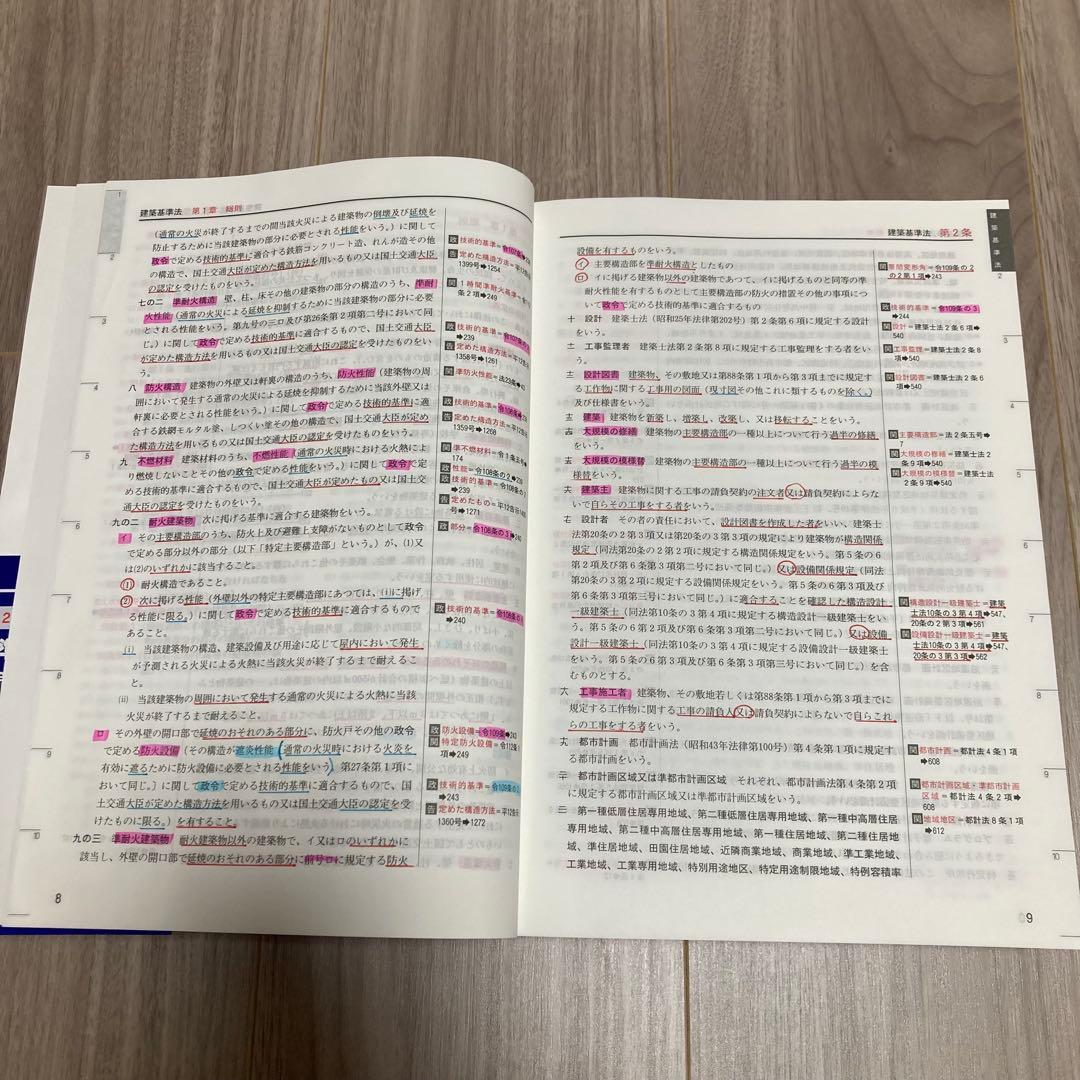 建築基準法 第1章 総則
(通常の火災が終了するまでの間当該火災による建築物の倒壊及び延焼を
防止するために当該建築物の部分に必要とされる性能をいう。)に関して
政令で定める技術的基準に適合する鉄筋コンクリート造、れんが造その他
の構造で、国土交通大臣が定めた構造方法を用いるもの又は国土交通大臣
の認定を受けたものをいう。
七の二 準耐火構造 壁、柱、床その他の建築物の部分の構造のうち、準耐
火性能(通常の火災による延焼を抑制するために当該建築物の部分に必要
とされる性能をいう。第九号の三ロ及び第26条第2項第二号において同
じ。)に関して政令で定める技術的基準に適合するもので、国土交通大臣
が定めた構造方法を用いるもの又は国土交通大臣の認定を受けたものをい
う。
八 防火構造 建築物の外壁又は軒裏の構造のうち、防火性能(建築物の周
囲において発生する通常の火災による延焼を抑制するために当該外壁又は
軒裏に必要とされる性能をいう。)に関して政令で定める技術的基準に適
合する鉄網モルタル塗、しつくい塗その他の構造で、国土交通大臣が定め
た構造方法を用いるもの又は国土交通大臣の認定を受けたものをいう。
九 不燃材料 建築材料のうち、不燃性能(通常の火災時における火熱によ
り燃焼しないことその他の政令で定める性能をいう。)に関して政令で定
める技術的基準に適合するもので、国土交通大臣が定めたもの又は国土交
通大臣の認定を受けたものをいう。
九の二 耐火建築物 次に掲げる基準に適合する建築物をいう。
イ その主要構造部のうち、防火上及び避難上支障がないものとして政令
で定める部分以外の部分(以下「特定主要構造部」という。)が、(1)又
は(2)のいずれかに該当すること。
(1) 耐火構造であること。
(2) 次に掲げる性能(外壁以外の特定主要構造部にあつては、(i)に掲げ
る性能に限る。)に関して政令で定める技術的基準に適合するもので
あること。
(i) 当該建築物の構造、建築設備及び用途に応じて屋内において発生
が予測される火災による火熱に当該火災が終了するまで耐えるこ
と。
(ii) 当該建築物の周囲において発生する通常の火災による火熱に当該
火災が終了するまで耐えること。
ロ その外壁の開口部で延焼のおそれのある部分に、防火戸その他の政令
で定める防火設備(その構造が遮炎性能(通常の火災時における火炎を
有効に遮るために防火設備に必要とされる性能をいう。第27条第1項に
おいて同じ。)に関して政令で定める技術的基準に適合するもので、国
土交通大臣が定めた構造方法を用いるもの又は国土交通大臣の認定を受
けたものに限る。)を有すること。
九の三 準耐火建築物 耐火建築物以外の建築物で、イ又はロのいずれかに
該当し、外壁の開口部で延焼のおそれのある部分に前号ロに規定する防火
政 技術的基準=令107条
告 定めた構造方法=
1399号➡1254
関 1時間準耐火基準=
条2項➡249
政 技術的基準=
➡239
告 定めた構造方法=平12告
1358号➡1261
関 準防火性能=法23条
政 技術的基準=令108条
告 定めた構造方法=平12告
1359号➡1268
関 準不燃材料=令1条五号➡
174
政 性能=令108条の2
➡239
告 定めたもの=平12告1400号
➡1271
政 部分=令108条の3➡240
政 技術的基準=令108条の4
➡240
政 防火設備=令109条
関 特定防火設備=令112条1
項➡249
政 技術的基準=令109条の2
➡243
告 定めた構造方法=平12告
1360号➡1272
8
建築基準法 第2条
設備を有するものをいう。
イ 主要構造部を準耐火構造としたもの
ロ イに掲げる建築物以外の建築物であつて、イに掲げるものと同等の準
耐火性能を有するものとして主要構造部の防火の措置その他の事項につ
いて政令で定める技術的基準に適合するもの
十 設計 建築士法(昭和25年法律第202号)第2条第6項に規定する設計
をいう。
十一 工事監理者 建築士法第2条第8項に規定する工事監理をする者をい
う。
十二 設計図書 建築物、その敷地又は第88条第1項から第3項までに規定す
る工作物に関する工事用の図面(現寸図その他これに類するものを除く。)
及び仕様書をいう。
十三 建築 建築物を新築し、増築し、改築し、又は移転することをいう。
十四 大規模の修繕 建築物の主要構造部の一種以上について行う過半の修繕
をいう。
十五 大規模の模様替 建築物の主要構造部の一種以上について行う過半の模
様替をいう。
十六 建築主 建築物に関する工事の請負契約の注文者又は請負契約によらな
いで自らその工事をする者をいう。
十七 設計者 その者の責任において、設計図書を作成した者をいい、建築士
法第20条の2第3項又は第20条の3第3項の規定により建築物が構造関係
規定(同法第20条の2第2項に規定する構造関係規定をいう。第5条の6第
2項及び第6条第3項第二号において同じ。)又は設備関係規定(同法
第20条の3第2項に規定する設備関係規定をいう。第5条の6第3項及び
第6条第3項第三号において同じ。)に適合することを確認した構造設計一
級建築士(同法第10条の3第4項に規定する構造設計一級建築士をい
う。第5条の6第2項及び第6条第3項第二号において同じ。)又は設備
設計一級建築士(同法第10条の3第4項に規定する設備設計一級建築士
をいう。第5条の6第3項及び第6条第3項第三号において同じ。)を含
むものとする。
十八 工事施工者 建築物、その敷地若しくは第88条第1項から第3項までに
規定する工作物に関する工事の請負人又は請負契約によらないで自らこれ
らの工事をする者をいう。
十九 都市計画 都市計画法(昭和43年法律第100号)第4条第1項に規定す
る都市計画をいう。
二十 都市計画区域又は準都市計画区域 それぞれ、都市計画法第4条第2項
に規定する都市計画区域又は準都市計画区域をいう。
二十一 第一種低層住居専用地域、第二種低層住居専用地域、第一種中高層住居
専用地域、第二種中高層住居専用地域、第一種住居地域、第二種住居地
域、準住居地域、田園住居地域、近隣商業地域、商業地域、準工業地域、
工業地域、工業専用地域、特別用途地区、特定用途制限地域、特例容積率
関 層間変形角=令109条の2
の2第1項➡243
政 技術的基準=令109条の3
➡244
関 設計=建築士法2条6項➡
540
関 工事監理=建築士法2条8
項➡540
関 設計図書=建築士法2条6
項➡540
関 主要構造部=法2条五号➡
7
関 大規模の修繕=建築士法
2条9項➡540
関 大規模の模様替=建築士法
2条9項➡540
関 構造設計一級建築士=建築
士法10条の3第4項➡547、
20条の2第3項➡561
関 設備設計一級建築士=建築
士法10条の3第4項➡547、
20条の3第3項➡562
関 都市計画=都計法4条1項
➡608
関 都市計画区域・準都市計画
区域=都計法4条2項➡
608
関 地域地区=都計法8条1項
➡612
建築基準法
9